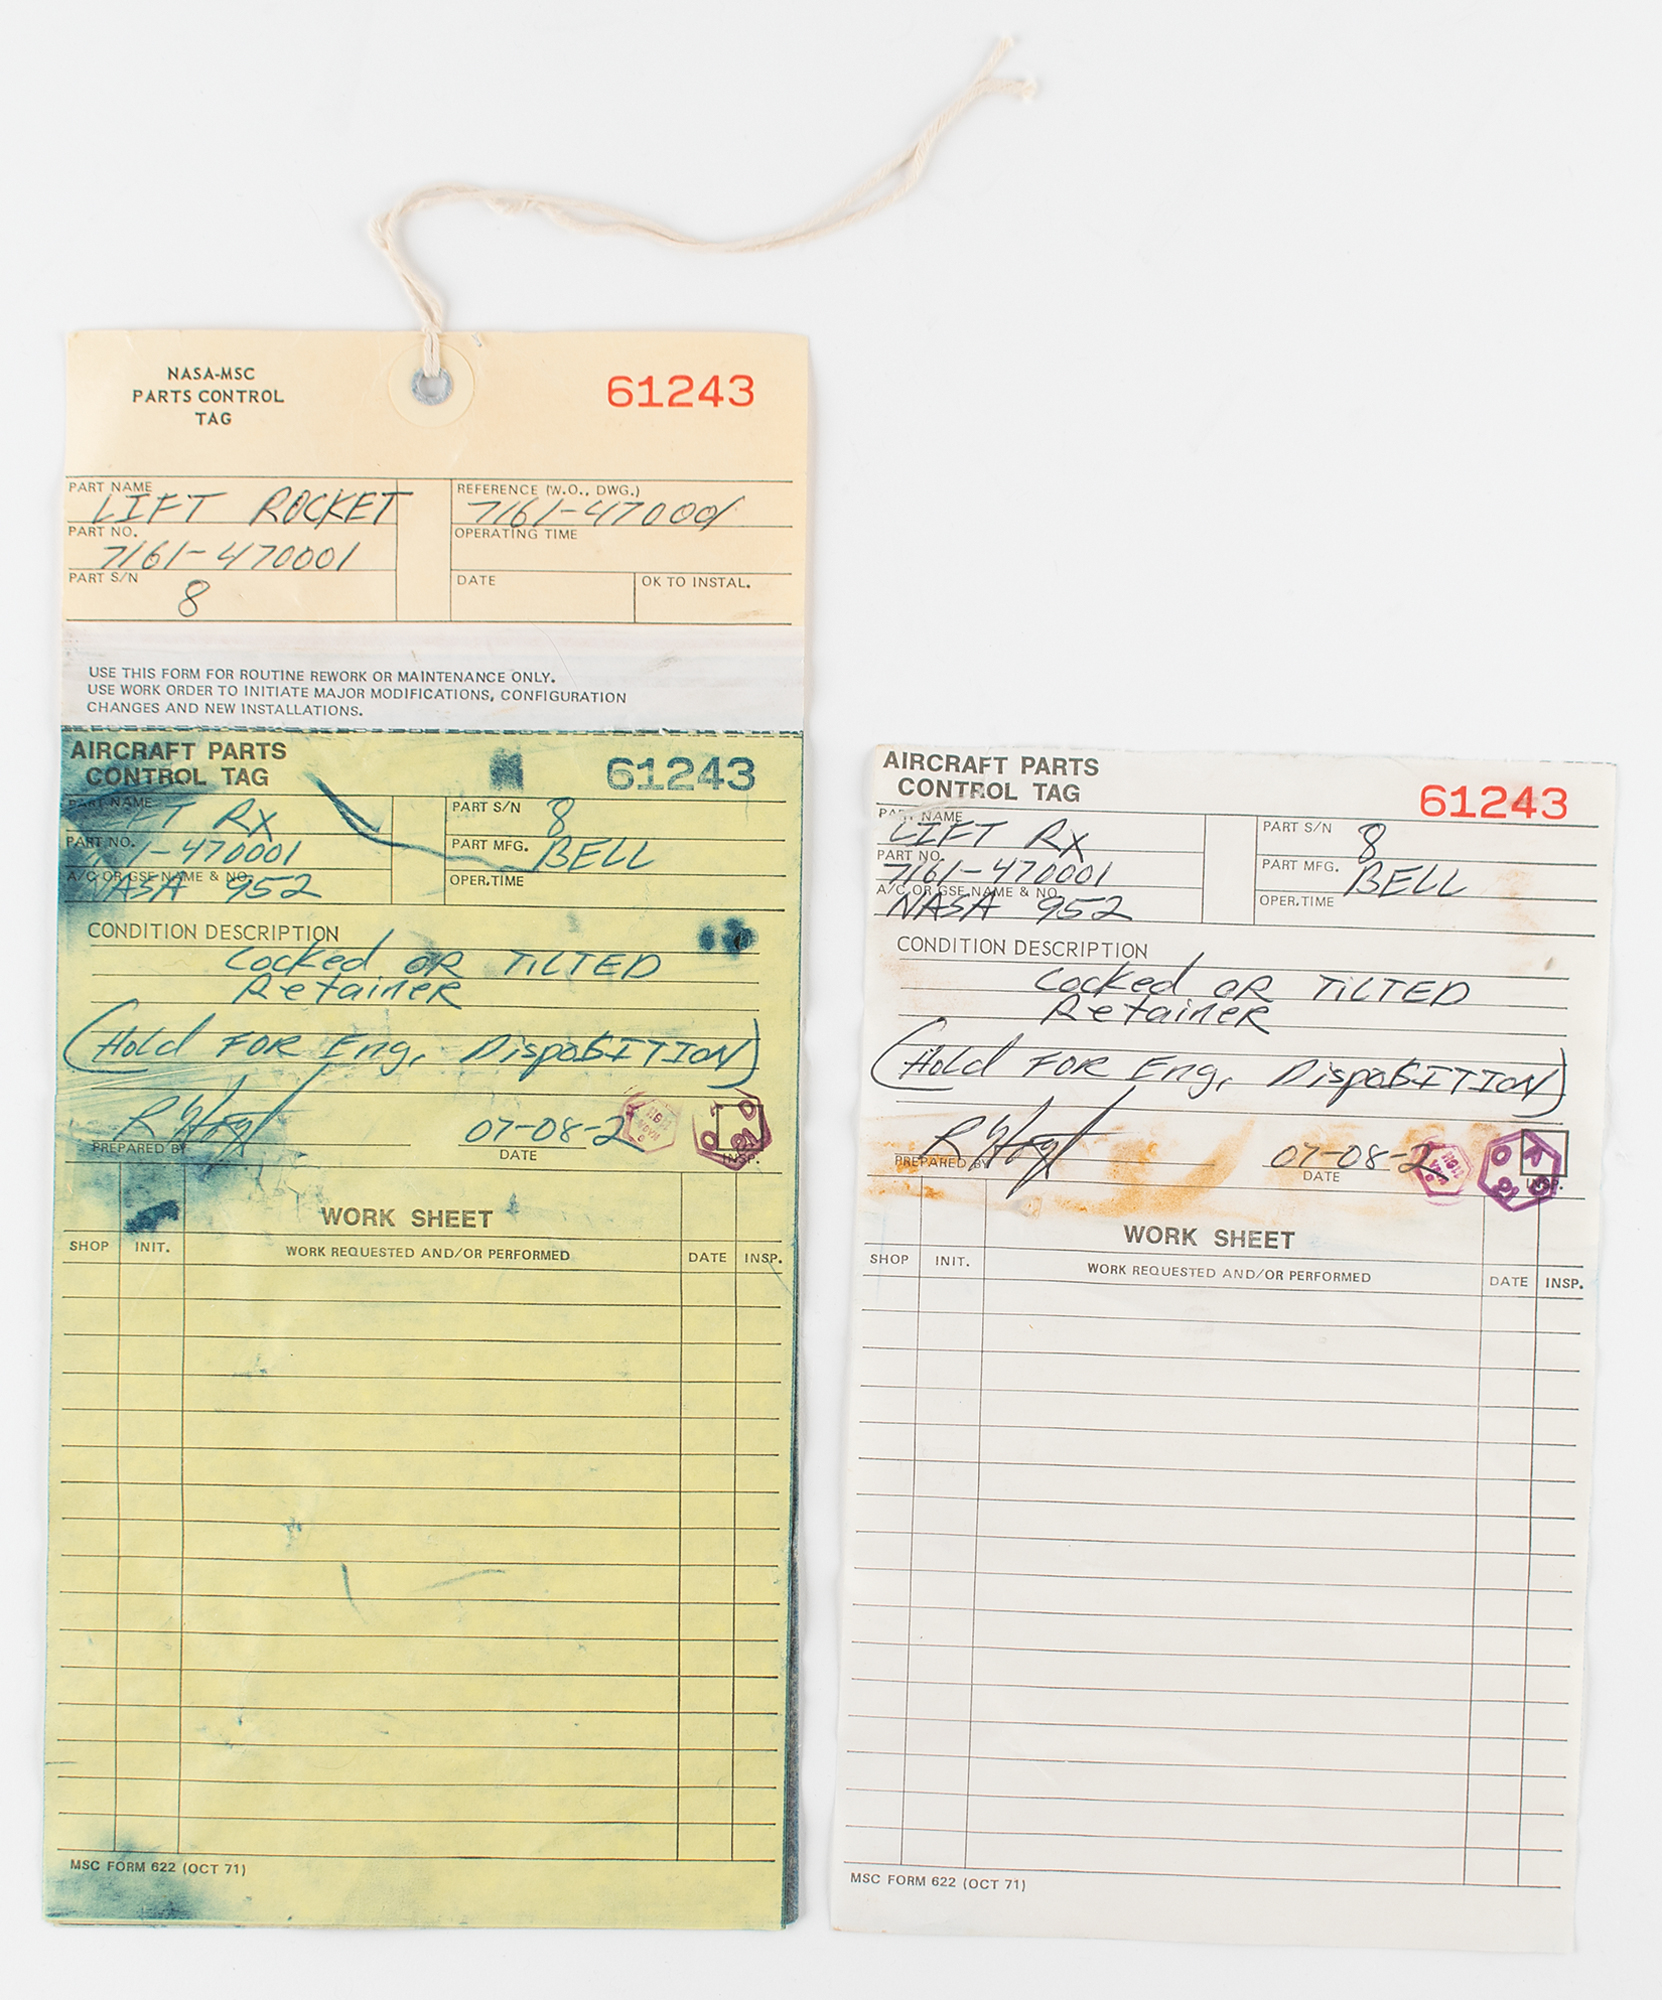 NASA-MSC
PARTS CONTROL
TAG
61243
PART NAME
LIFT ROCKET
REFERENCE (W.O., DWG.)
7161-470001
PART NO.
7161-470001
OPERATING TIME
PART S/N
8
DATE
OK TO INSTAL.
USE THIS FORM FOR ROUTINE REWORK OR MAINTENANCE ONLY.
USE WORK ORDER TO INITIATE MAJOR MODIFICATIONS, CONFIGURATION
CHANGES AND NEW INSTALLATIONS.
AIRCRAFT PARTS
CONTROL TAG
61243
PART NAME
LIFT Rx
PART S/N
8
PART NO.
1-470001
PART MFG.
BELL
A/C OR GSE NAME & NO.
NASA 952
OPER.TIME
CONDITION DESCRIPTION
Cocked OR TiLTED
RetaineR
(Hold FOR Eng, DisposITION)
PREPARED BY
07-08-2
DATE
INSP.
WORK SHEET
SHOP
INIT.
WORK REQUESTED AND/OR PERFORMED
DATE
INSP.
MSC FORM 622 (OCT 71)
AIRCRAFT PARTS
CONTROL TAG
61243
PART NAME
LIFT Rx
PART S/N
8
PART NO.
7161-470001
PART MFG.
BELL
A/C OR GSE NAME & NO.
NASA 952
OPER.TIME
CONDITION DESCRIPTION
Cocked OR TiLTED
RetaineR
(Hold FOR Eng, DisposITION)
PREPARED BY
07-08-2
DATE
INSP.
WORK SHEET
SHOP
INIT.
WORK REQUESTED AND/OR PERFORMED
DATE
INSP.
MSC FORM 622 (OCT 71)